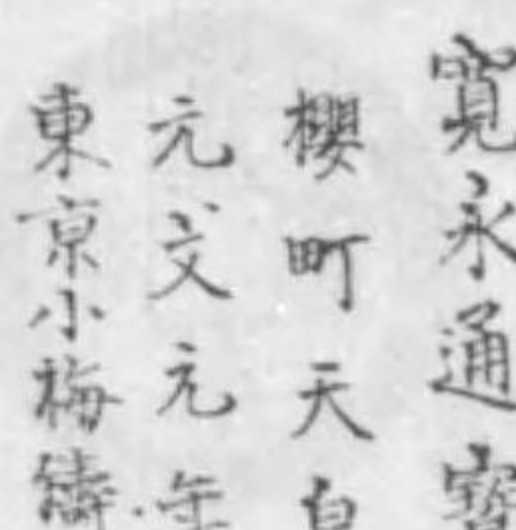 寛永通寳
櫻町天皇
元文元年
東京小梅鑄